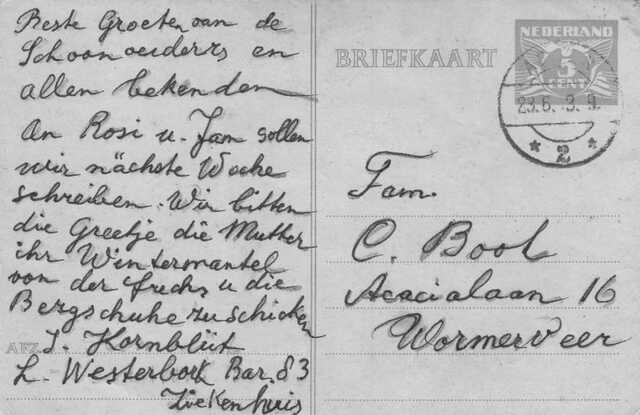 Beste Groeten van de
Schoonouders en
allen bekenden
An Rosi u. Jam sollen
wir nächste Woche
schreiben. Wir bitten
die Greetje die Mutter
ihr Wintermantel
von der u die
Bergschuhe zu schicken
J. Kornblüt
L. Westerbork Bar. 83
Ziekenhuis
AFZ.
BRIEFKAART
NEDERLAND
5
CENT
23.6. 3. 9.
* 2 *
Fam.
C. Bool
Acacialaan 16
Wormerveer